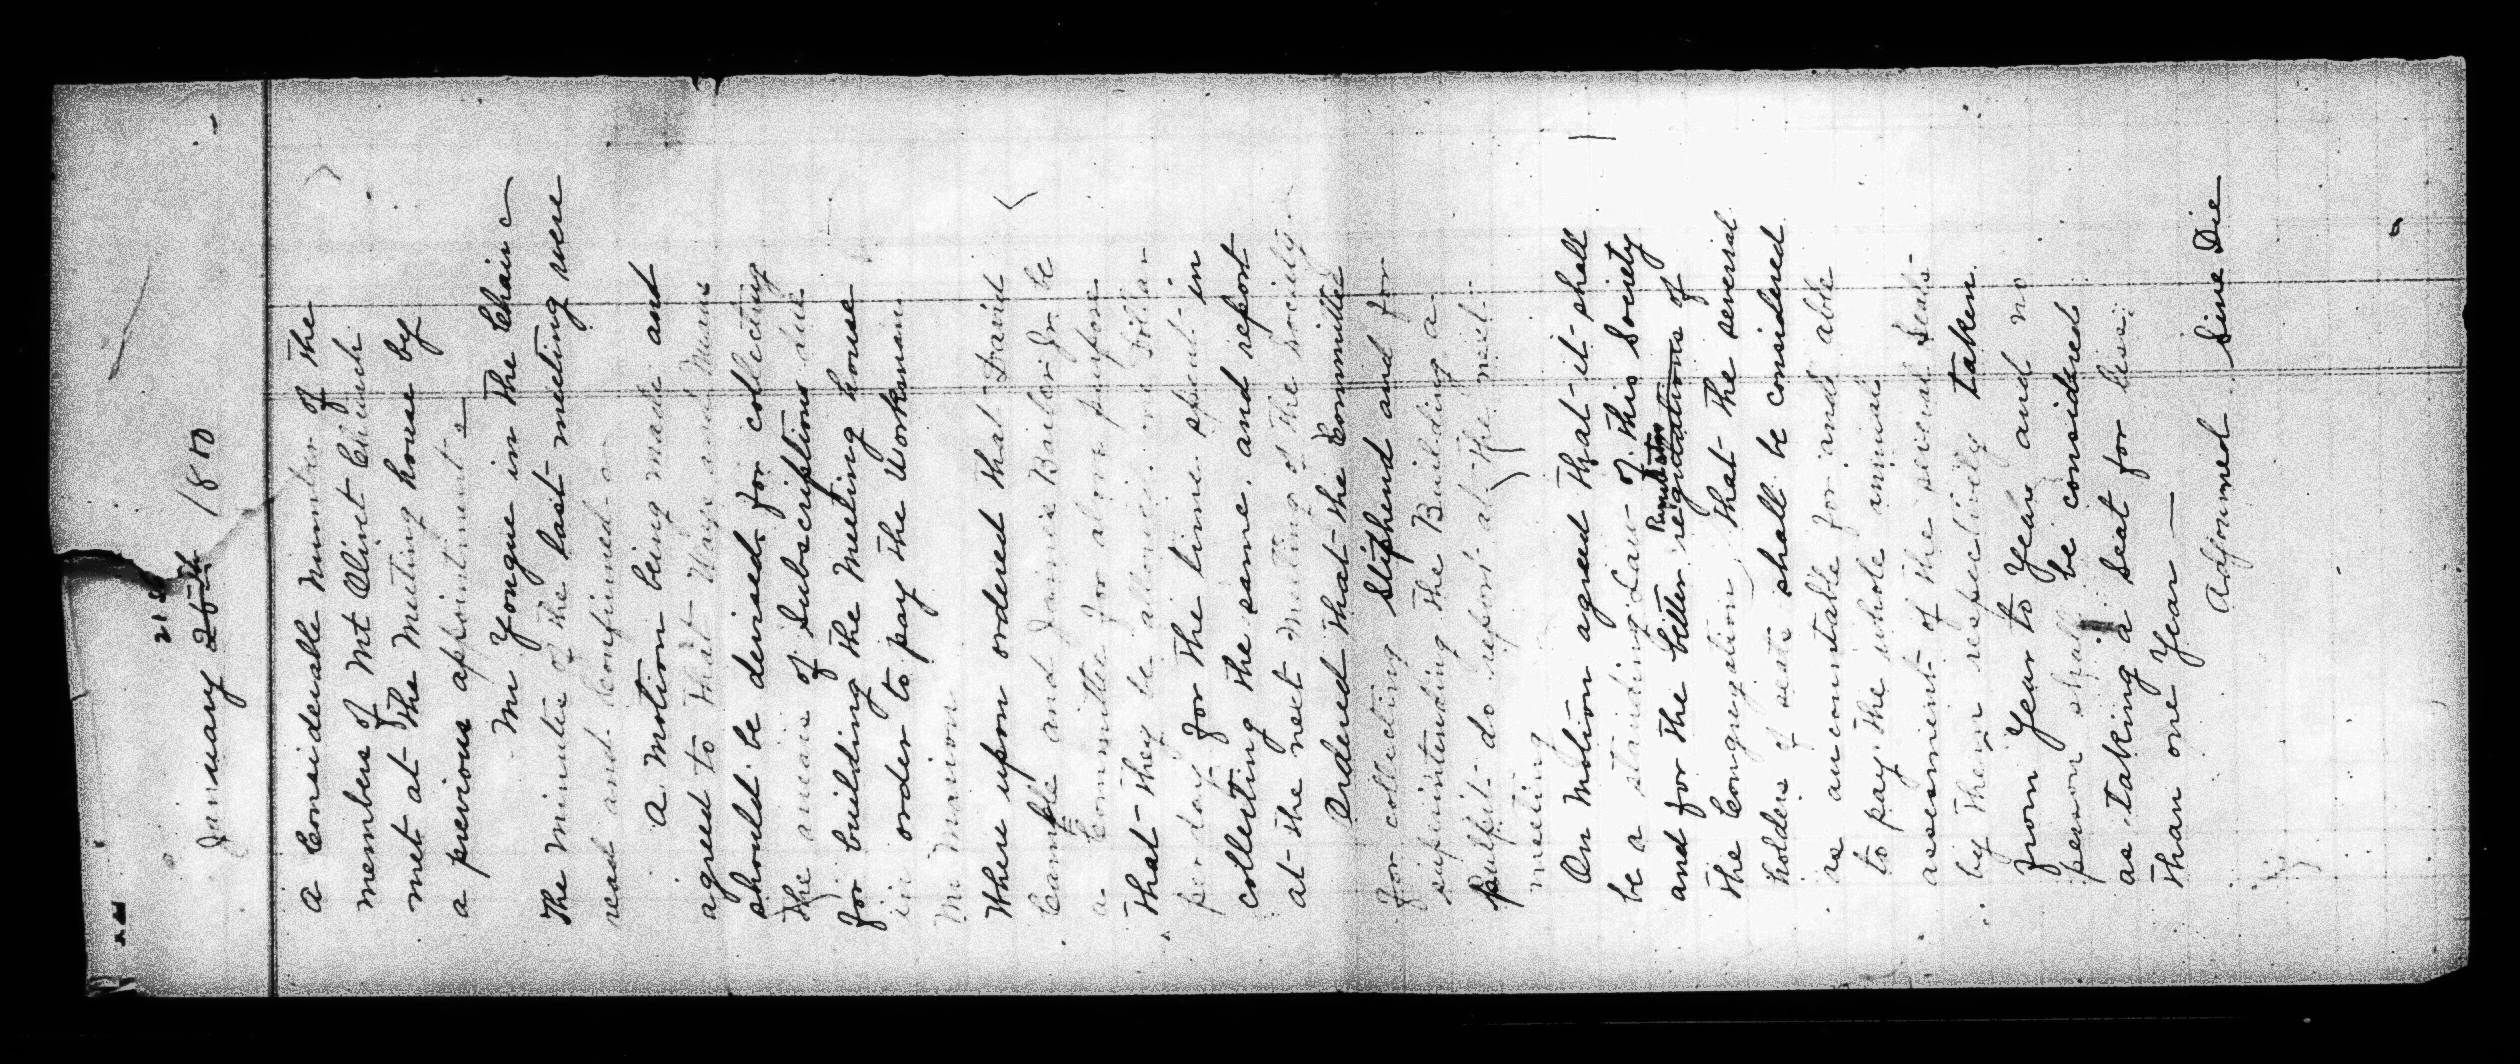 21st
January 25th 1800
A Considerable Number of the
members of Mt Olivet Church
met at the Meeting house by
a previous appointment
Mr Yongue in the Chair
The Minutes of the last meeting were
read and confirmed
A Motion being made and
agreed to that Ways and Means
should be devised for collecting
the arrears of Subscriptions due
for building the Meeting house
in order to pay the Workman
Mr Marion
Thereupon ordered that David
Camble and James Bailor Jr be
a Committee for above purpose
that they be allowed one Dollar
per day for the time spent in
collecting the same, and report
at the next Meeting of the Society.
Ordered that the Committee
for collecting Stiphend and for
superintending the Building a
pulpit do report at the next
meeting
On Motion agreed that it shall
be a standing Law of this Society
and for the better regulations of
the Congregation that the several
holders of seats shall be considered
as accountable for and able
to pay the whole annual
assessment of the several Seats
by them respectively taken
from Year to Year and no
person shall be considered
as taking a seat for less
than one Year —
Adjourned Sine Die